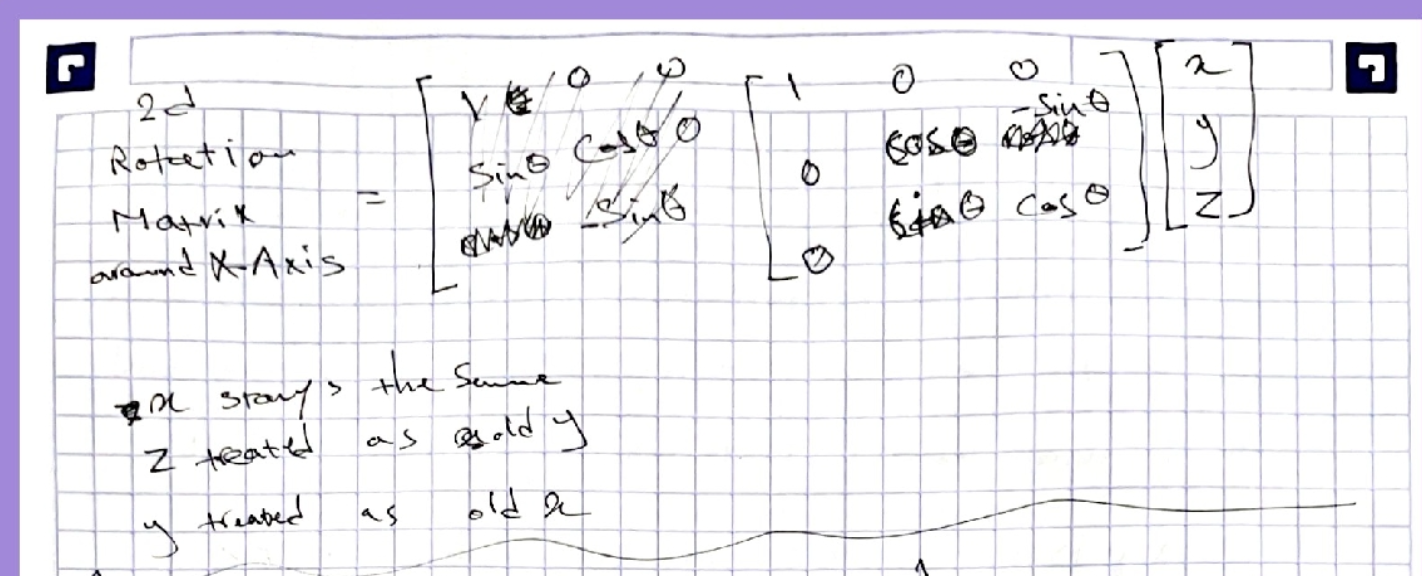 2d
Rotation
Matrix
around X-Axis
=
1 0 0
sinθ cosθ 0
-sinθ
1 0 0
0 cosθ -sinθ
0 sinθ cosθ
x
y
z
x stays the same
z treated as old y
y treated as old x